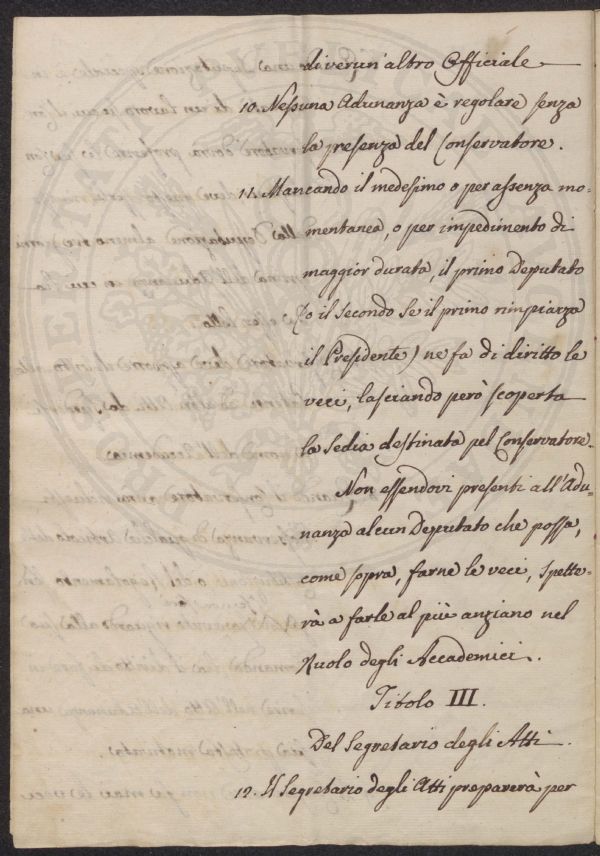 di verun'altro Officiale
10. Nessuna Adunanza è regolare senza
la presenza del Conservatore.
11. Mancando il medesimo o per assenza mo-
mentanea, o per impedimento di
maggior durata, il primo Deputato
(o il secondo se il primo rimpiazza
il Presidente) ne fa di diritto le
veci, lasciando però scoperta
la sedia destinata pel Conservatore.
Non essendovi presenti all'Adu-
nanza alcun Deputato che possa,
come sopra, farne le veci, spette-
rà a farle al più anziano nel
Ruolo degli Accademici.
Titolo III.
Del Segretario degli Atti.
12. Il Segretario degli Atti preparerà per